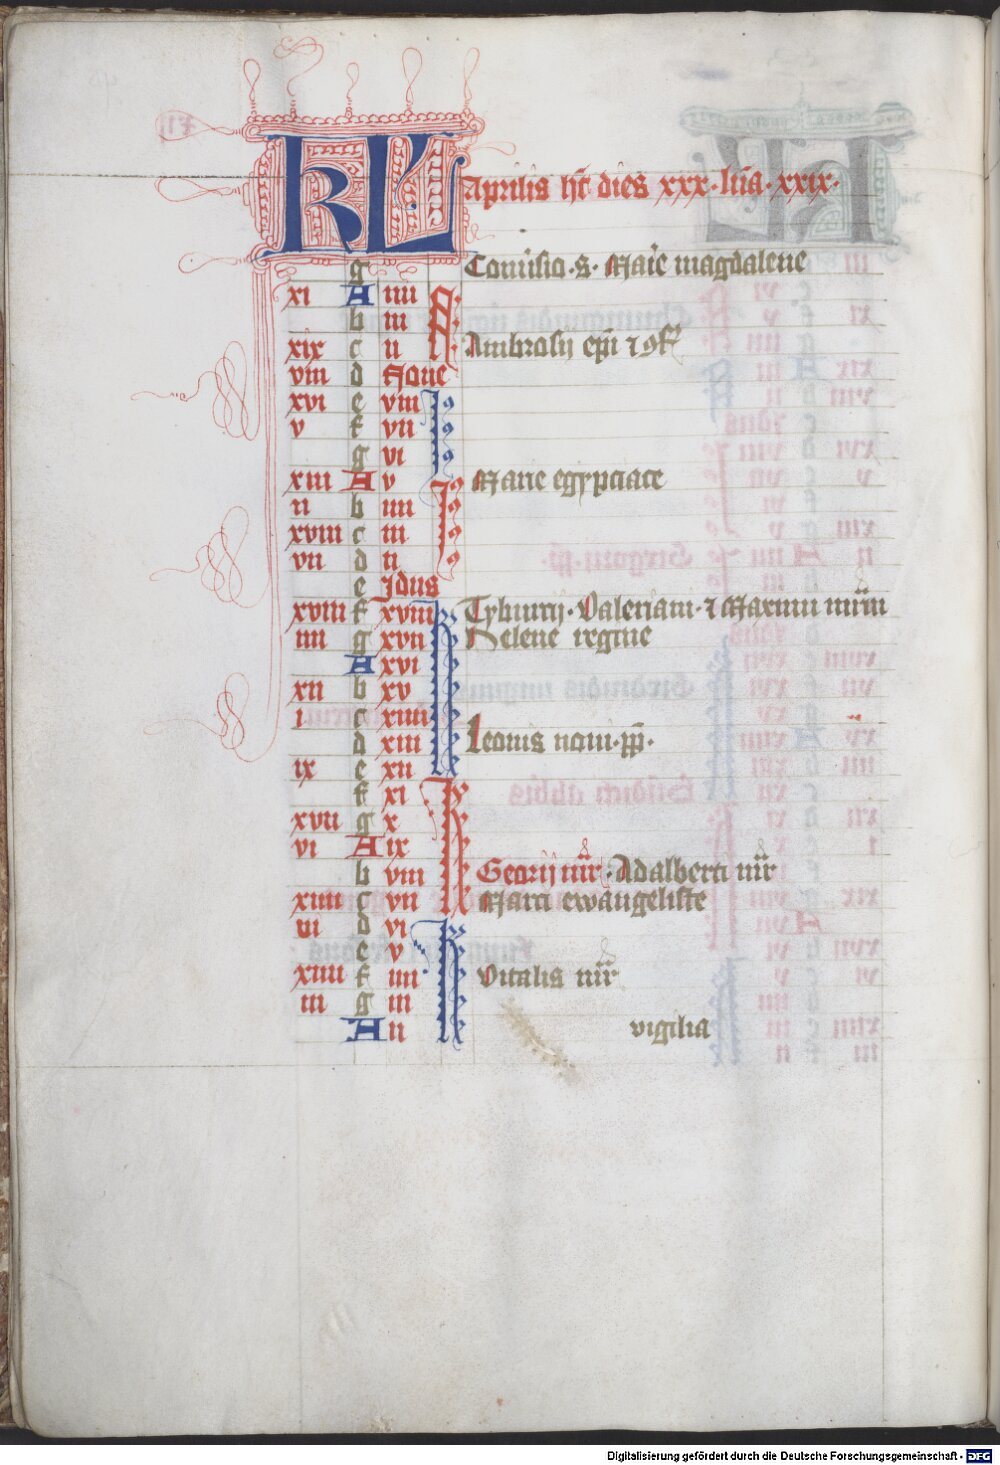 KL Aprilis ht dies xxx · luna · xxix ·
g Conuersio · s · Marie magdalene
xi A iiii N
b iii
xix c ii Ambrosij epi et 9f
viii d None
xvi e viii J
v f vii
g vi
xiii A v Marie egypciace
ii b iiii J
xviii c iii
vii d ii
e Jdus
xviii f xviii Tyburcij · Valeriani · et Maximi mrm
iiii g xvii Helene regine
A xvi
xii b xv
i c xiiii
d xiii Leonis noui · pp ·
ix e xii
f xi
xvii g x
vi A ix Georij mr · Adalberti mr
b viii
xiiii c vii Marci ewangeliste
iii d vi
e v
xiiii f iiii Vitalis mr
iii g iii
A ii vigilia
Digitalisierung gefördert durch die Deutsche Forschungsgemeinschaft - DFG